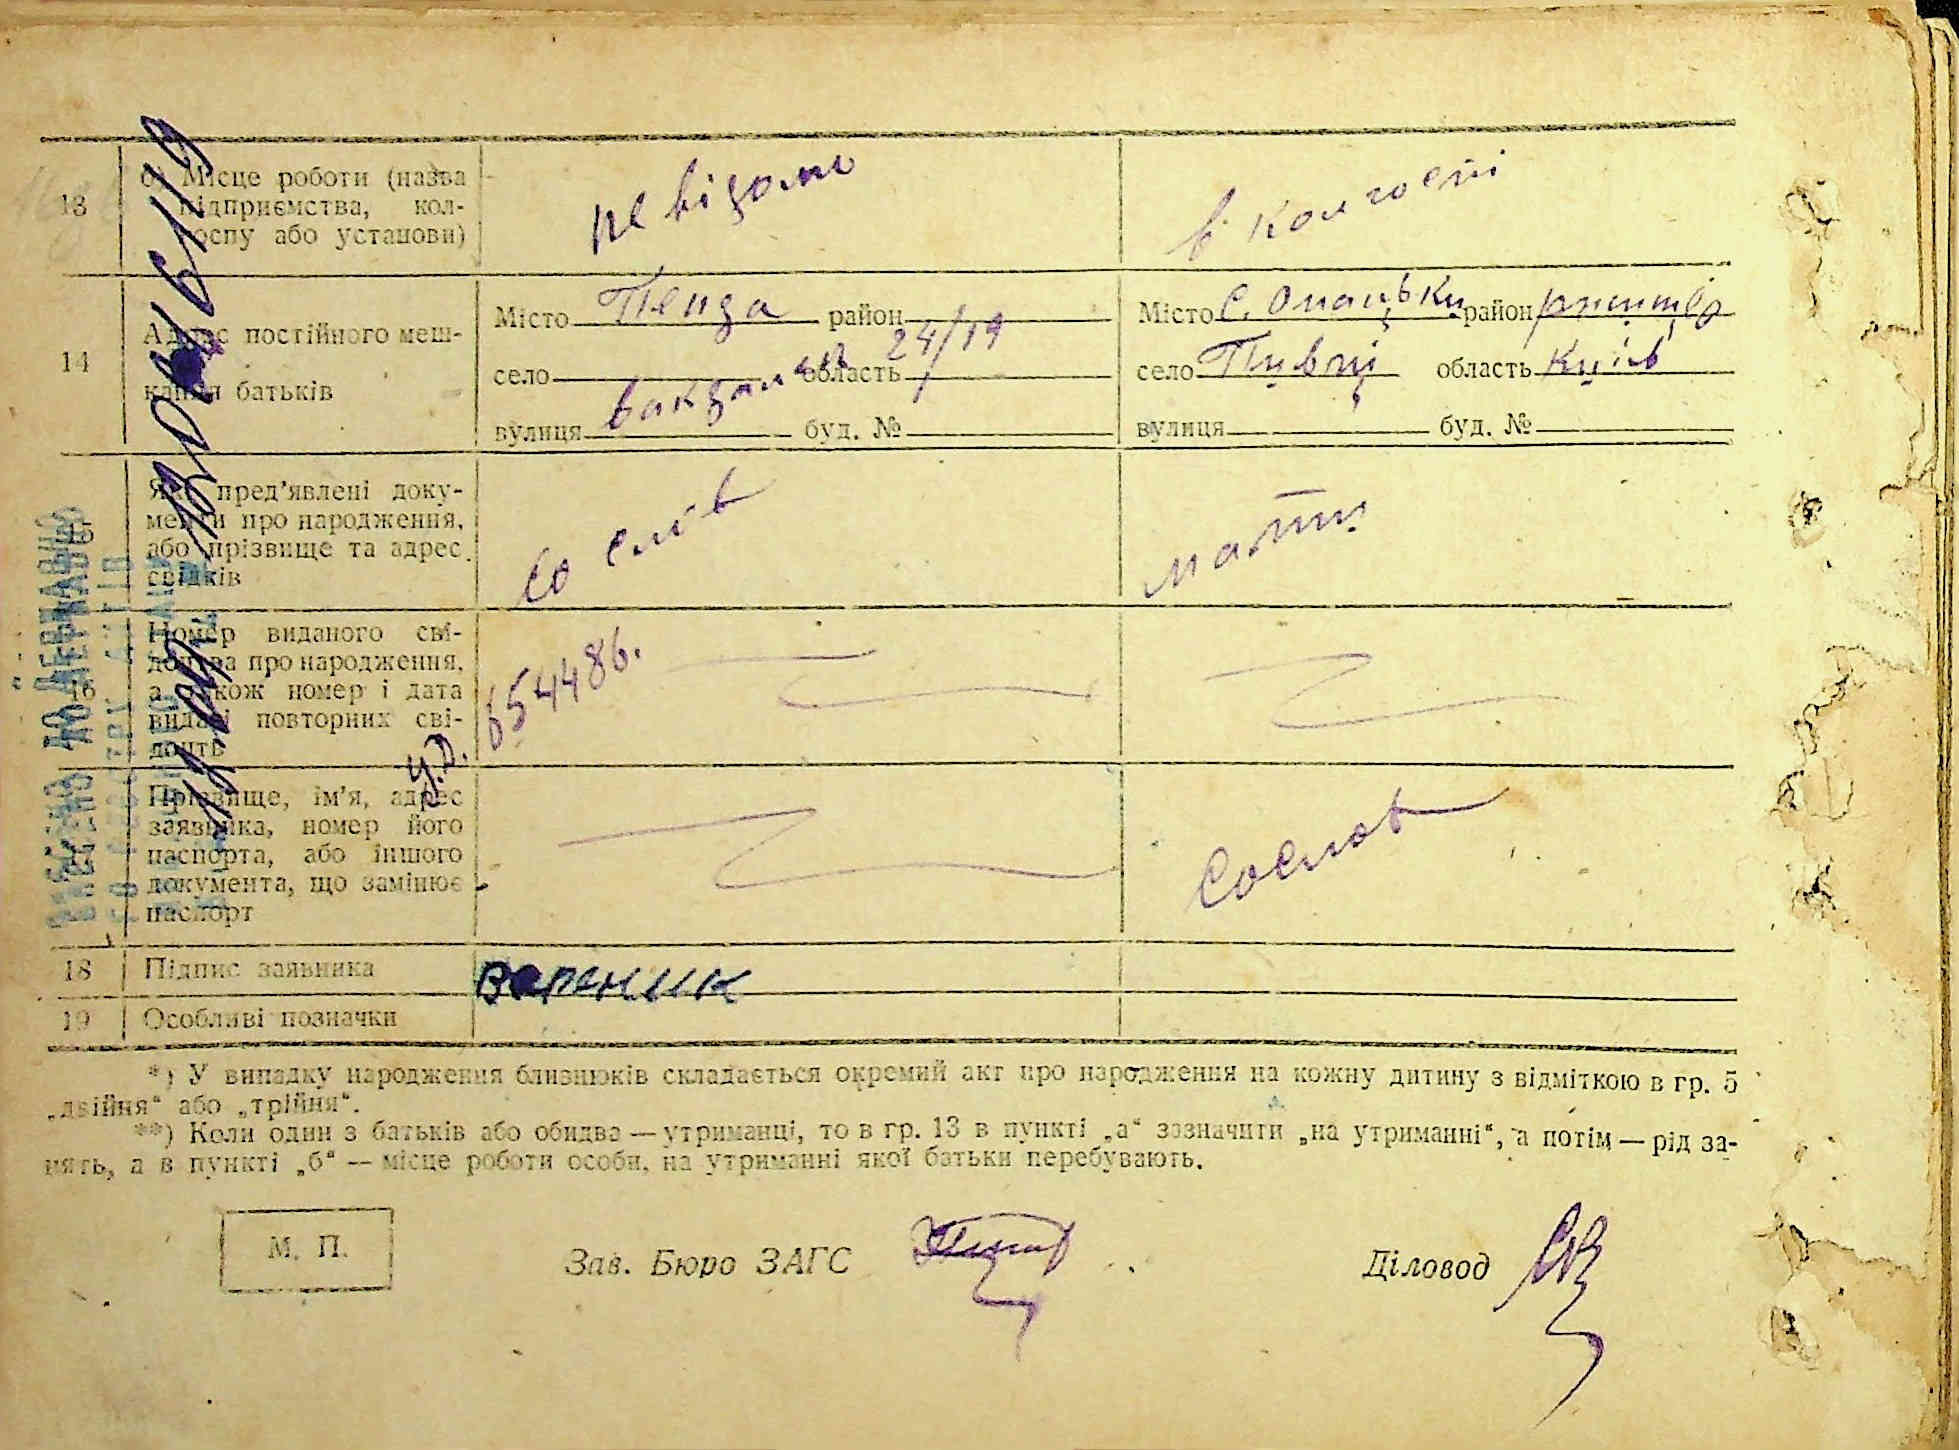 13
б) Місце роботи (назва
підприємства, кол-
госпу або установи)
не відомо
в колгоспі
14
Адрес постійного меш-
кання батьків
Місто Пенза район
село область
24/19
вулиця буд. №
Місто с. район
село область Київ
вулиця буд. №
15
Які пред'явлені доку-
менти про народження,
або прізвище та адрес
свідків
со слів
мати
16
Номер виданого сві-
доцтва про народження,
а також номер і дата
видачі повторних сві-
доцтв
654486.
17
Прізвище, ім'я, адрес
заявника, номер його
паспорта, або іншого
документа, що замінює
паспорт
18
Підпис заявника
Вареник
19
Особливі позначки
*) У випадку народження близнюків складається окремий акт про народження на кожну дитину з відміткою в гр. 5
„двійня“ або „трійня“.
**) Коли один з батьків або обидва — утриманці, то в гр. 13 в пункті „а“ зазначити „на утриманні“, а потім — рід за-
нять, а в пункті „б“ — місце роботи особи, на утриманні якої батьки перебувають.
М. П.
Зав. Бюро ЗАГС
Діловод